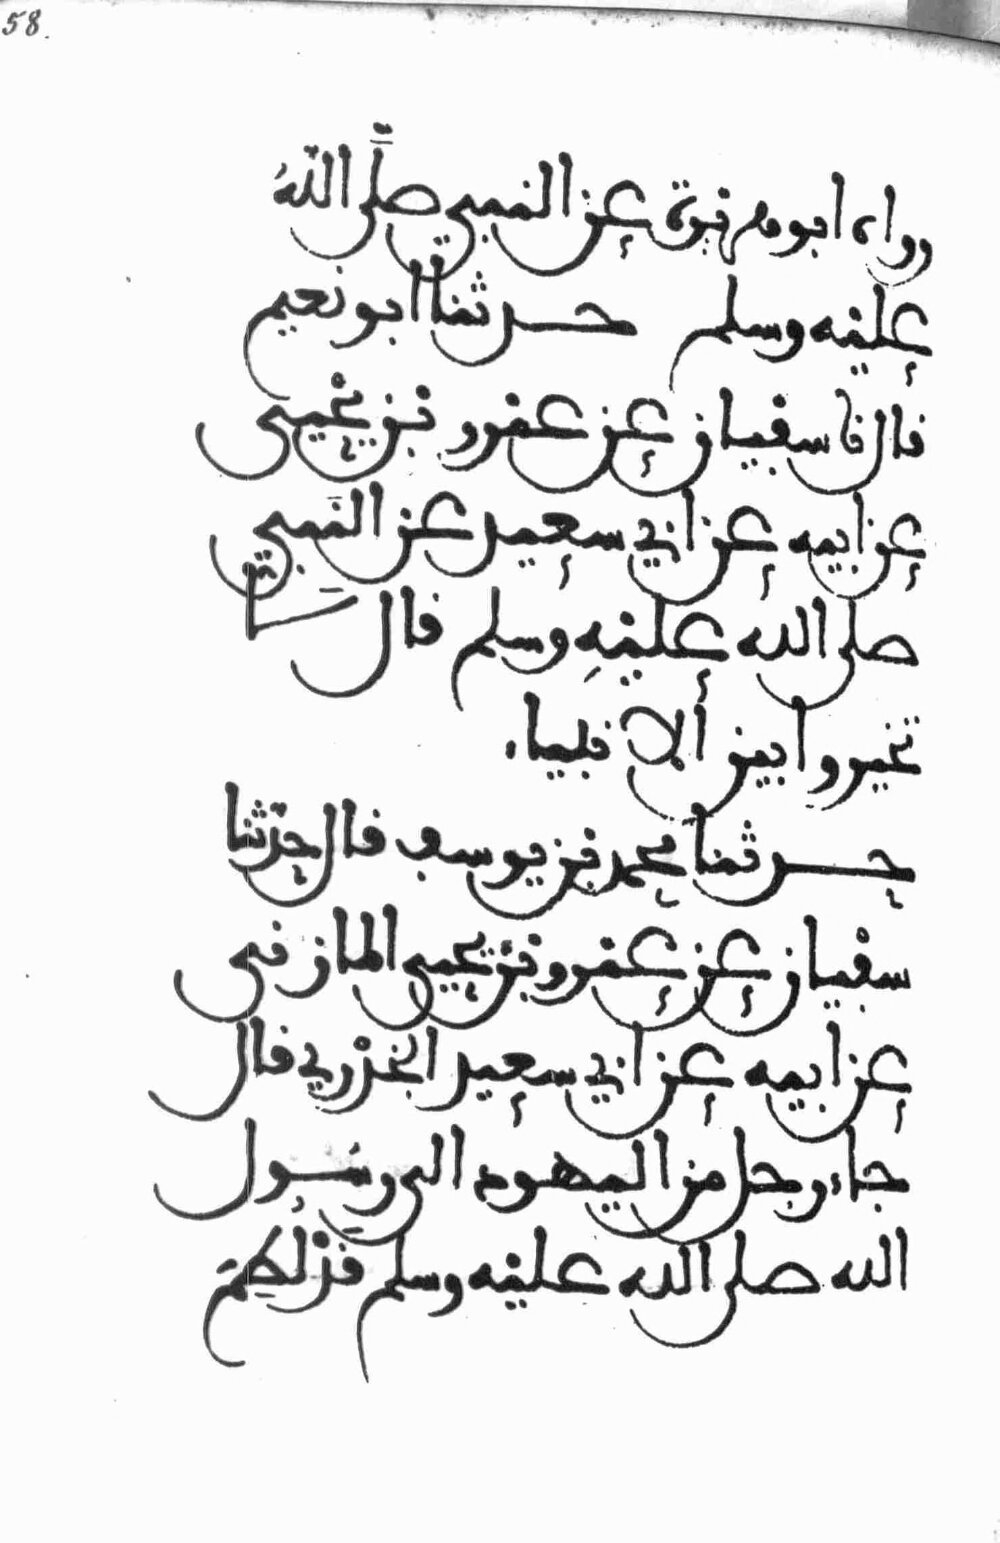 58.
رواه ابو هريرة عن النبي صلَّى اللّهُ
عليه وسلم حدثنا ابو نعيم
قال نا سفيان عن عمرو بن يحيى
عن ابيه عن ابي سعيد عن النبي
صلى الله عليه وسلم قال لا
تخيروا بين الانبياء
حدثنا محمد بن يوسف قال حدّثنا
سفيان عن عمرو بن يحيى المازني
عن ابيه عن ابي سعيد الخدري قال
جاء رجل من اليهود الى رسول
الله صلى الله عليه وسلم قد لطم